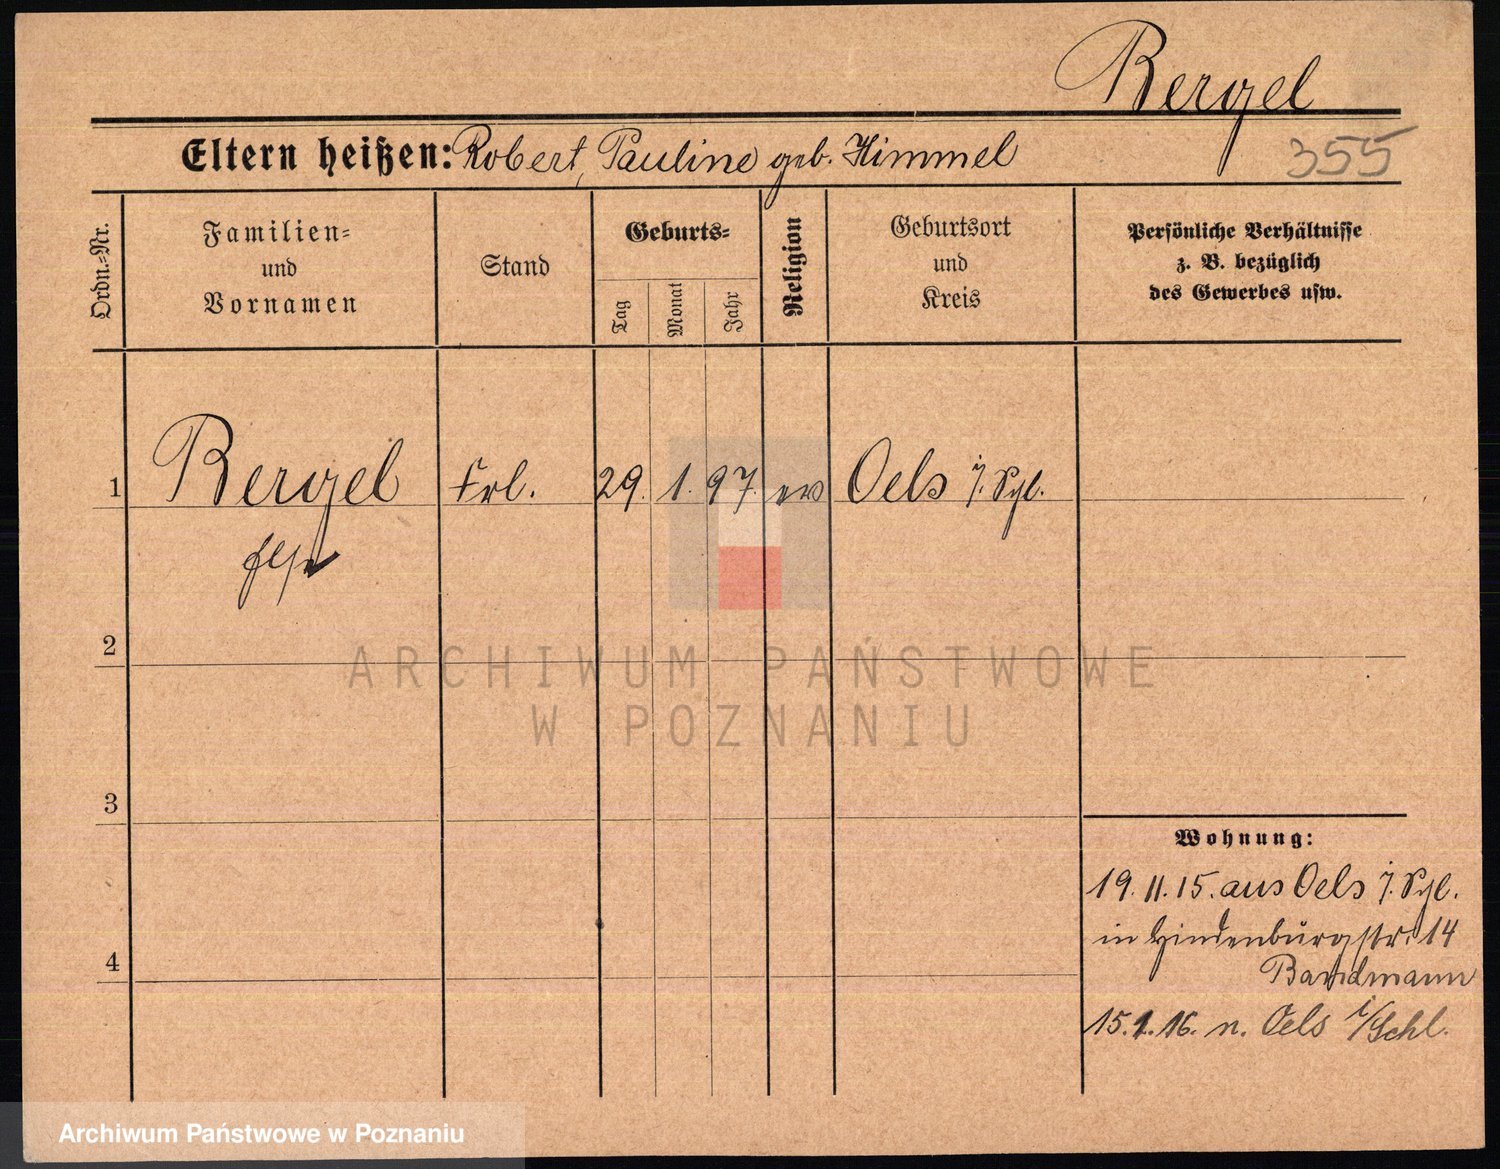 Bergel
Eltern heißen: Robert, Pauline geb. Himmel
355
Ordn.-Nr.
Familien-
und
Vornamen
Stand
Geburts-
Tag
Monat
Jahr
Religion
Geburtsort
und
Kreis
Persönliche Verhältnisse
z. B. bezüglich
des Gewerbes usw.
1 Bergel Frl. 29. 1. 97. ev Oels i. Schl.
2
3
4
Wohnung:
19. 11. 15. aus Oels i. Schl.
in Hindenburgstr. 14
Bandmann
15. 1. 16. n. Oels i/Schl.
ARCHIWUM PAŃSTWOWE
W POZNANIU
Archiwum Państwowe w Poznaniu